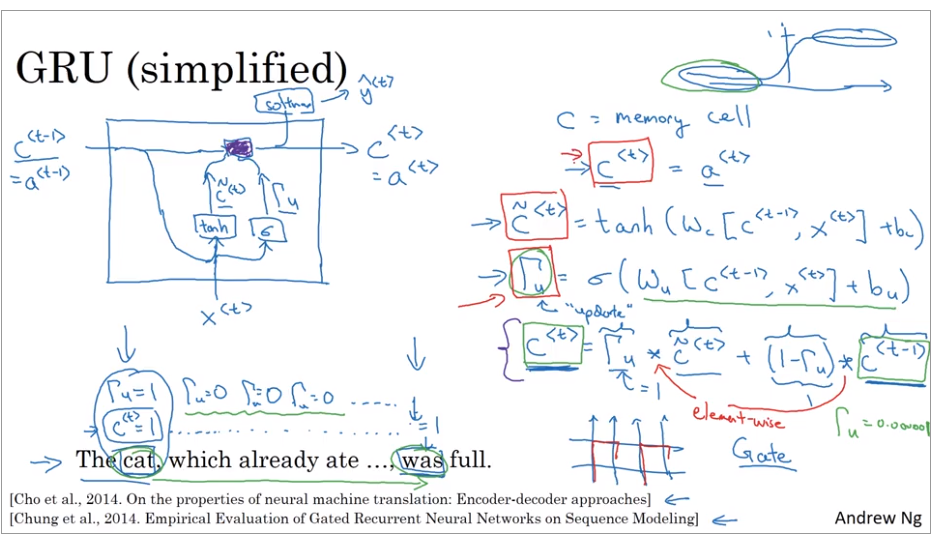 GRU (simplified)
softmax → ŷ<t>
c<t-1>
= a<t-1>
c<t>
= a<t>
c̃<t>
Γu
tanh
σ
x<t>
1
c = memory cell
→ c<t> = a<t>
→ c̃<t> = tanh (Wc [c<t-1>, x<t>] + bc)
→ Γu = σ (Wu [c<t-1>, x<t>] + bu)
"update"
c<t> = Γu * c̃<t> + (1-Γu) * c<t-1>
= 1
element-wise
Γu = 0.000001
Gate
Γu = 1 Γu = 0 Γu = 0 Γu = 0 .....
c<t> = 1 .......... = 1
→ The cat, which already ate …, was full.
[Cho et al., 2014. On the properties of neural machine translation: Encoder-decoder approaches] ←
[Chung et al., 2014. Empirical Evaluation of Gated Recurrent Neural Networks on Sequence Modeling] ←
Andrew Ng